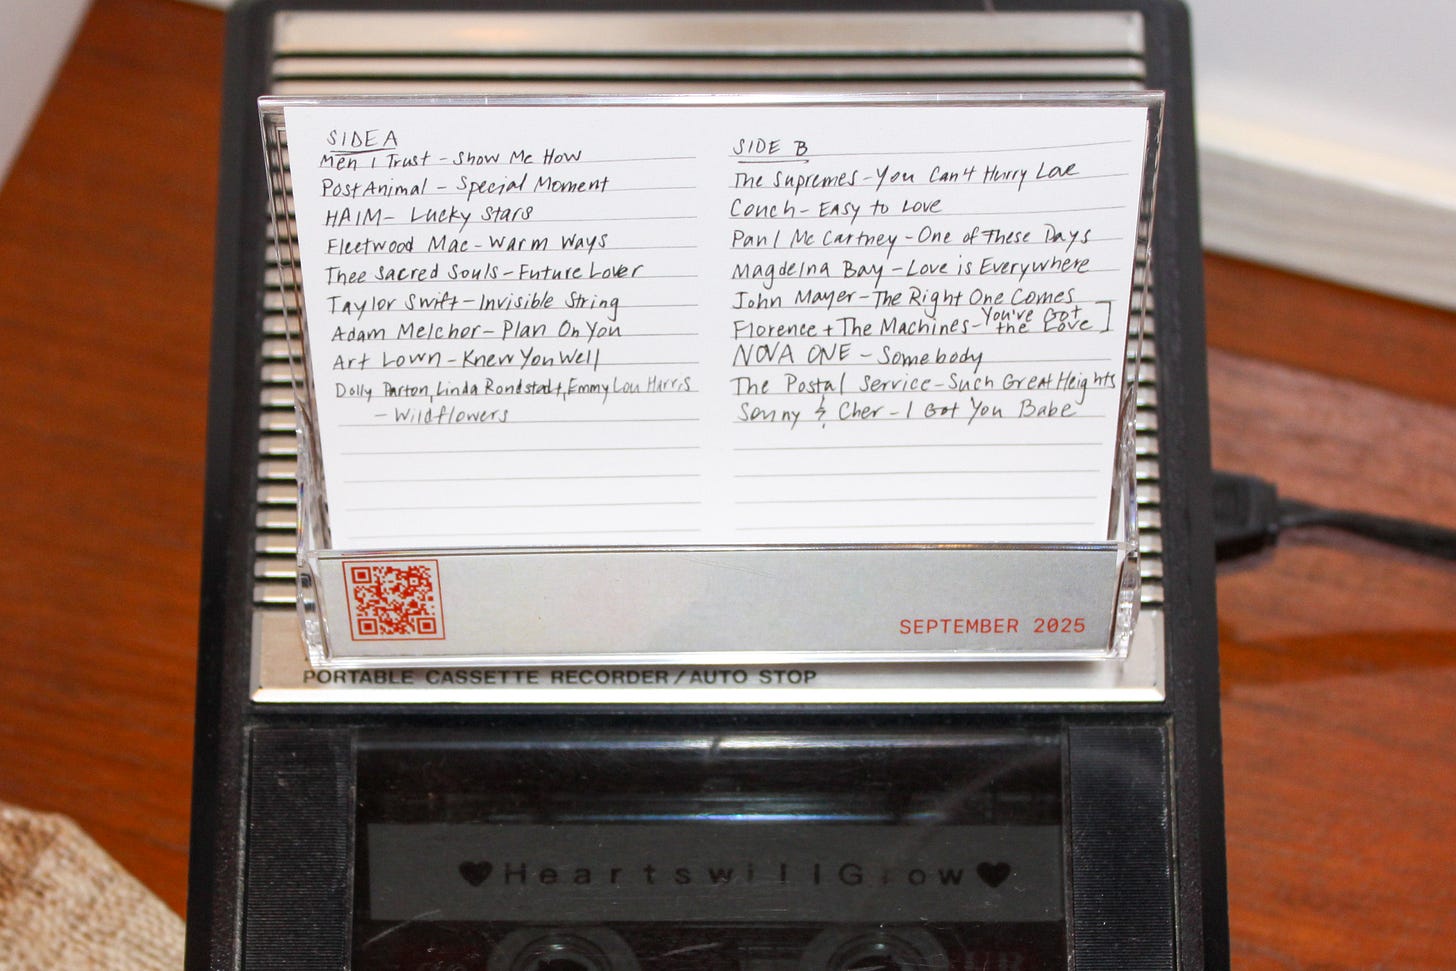 SIDE A
Men I Trust - Show Me How
Post Animal - Special Moment
HAIM - Lucky Stars
Fleetwood Mac - Warm Ways
Thee Sacred Souls - Future Lover
Taylor Swift - Invisible String
Adam Melchor - Plan On You
Art Lown - Knew You Well
Dolly Parton, Linda Rondstadt, Emmy Lou Harris
- Wildflowers
SIDE B
The Supremes - You Can't Hurry Love
Couch - Easy to Love
Paul McCartney - One of These Days
Magdelna Bay - Love is Everywhere
John Mayer - The Right One Comes
Florence + The Machines - You've Got the Love ]
NOVA ONE - Somebody
The Postal Service - Such Great Heights
Sonny & Cher - I Got You Babe
SEPTEMBER 2025
PORTABLE CASSETTE RECORDER/AUTO STOP
♥HeartswillGlow♥